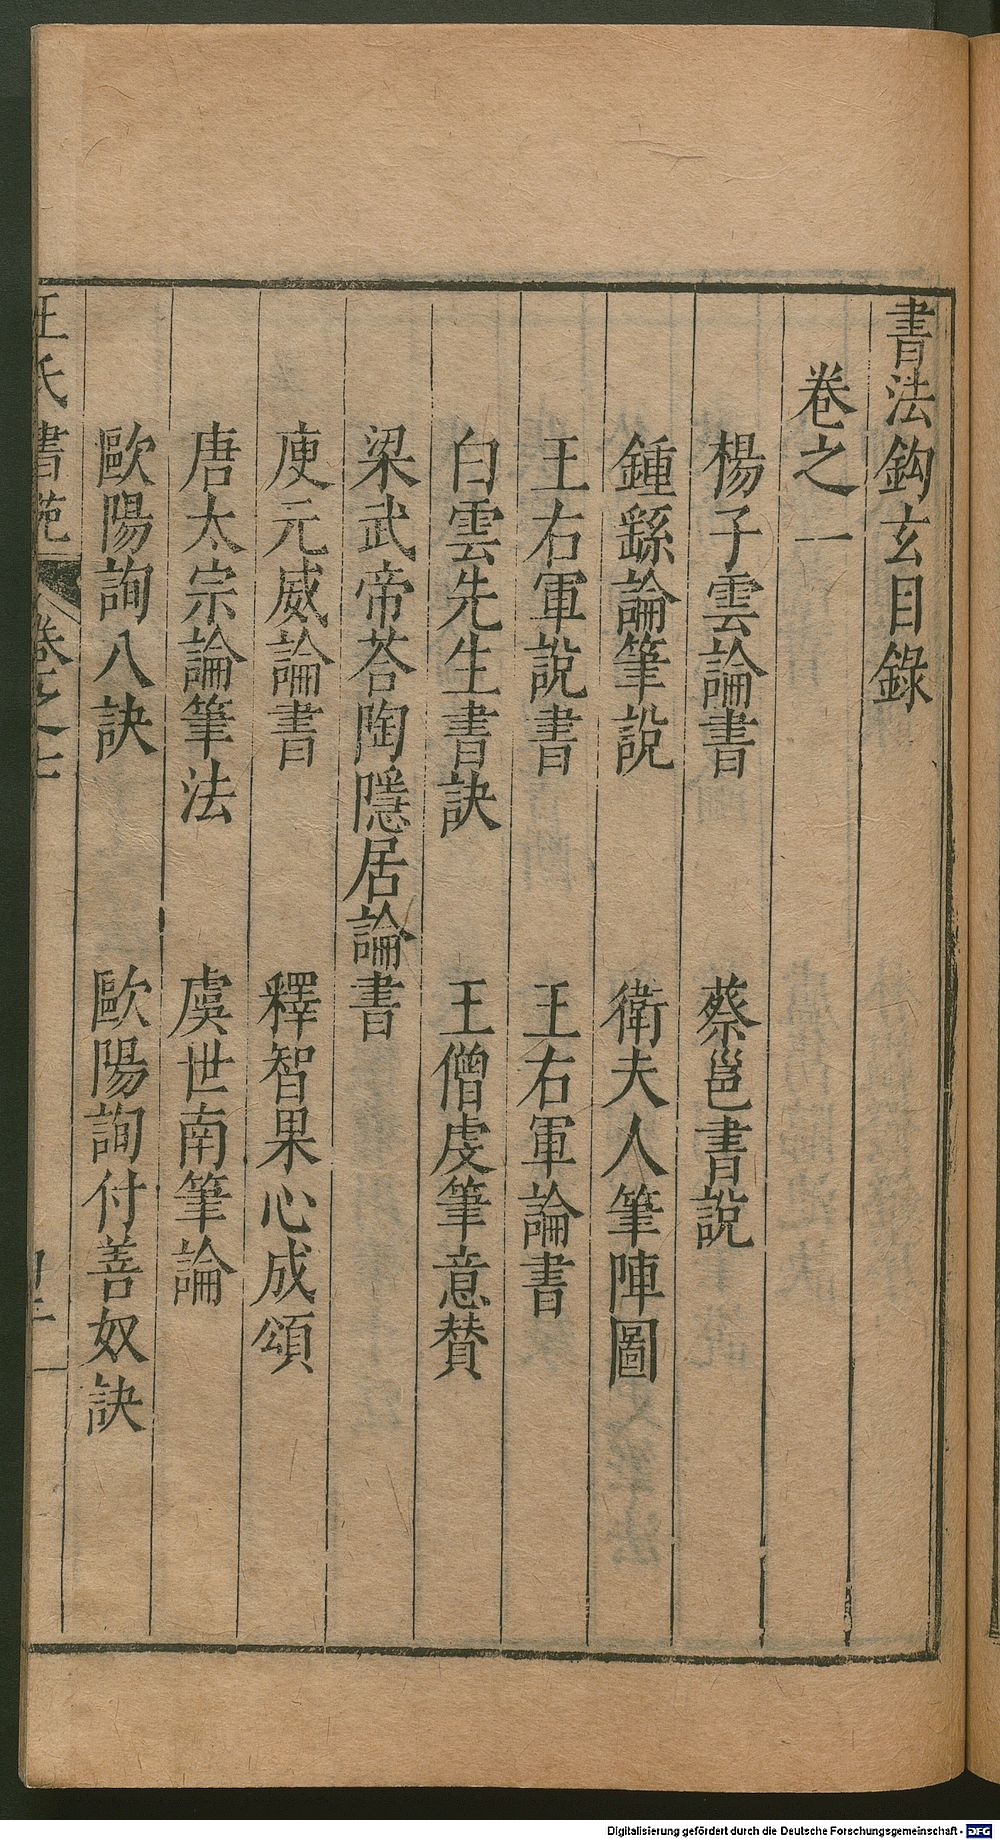 書法鈎玄目錄
卷之一
楊子雲論書　蔡邕書說
鍾繇論筆說　衛夫人筆陣圖
王右軍說書　王右軍論書
白雲先生書訣　王僧虔筆意贊
梁武帝荅陶隱居論書
庾元威論書　釋智果心成頌
唐太宗論筆法　虞世南筆論
歐陽詢八訣　歐陽詢付善奴訣
王氏書苑　卷之七
Digitalisierung gefördert durch die Deutsche Forschungsgemeinschaft - DFG